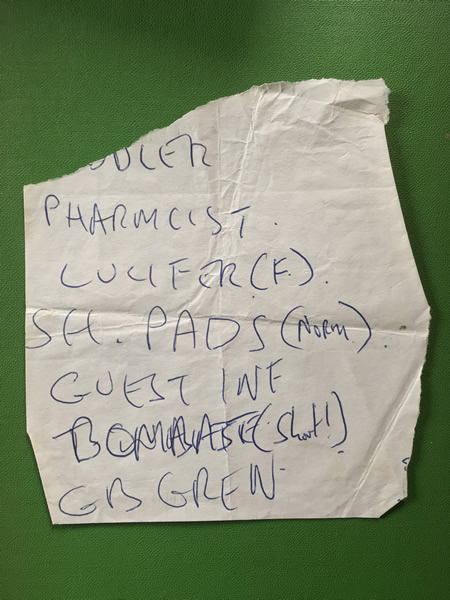 PHARMCIST.
LUCIFER (F.).
SH. PADS (NORM.).
GUEST INF
BOMBASTE (Short!)
GB GREN